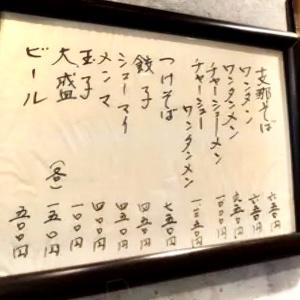 支那そば 六五〇円
ワンタン 六五〇円
ワンタンメン
チャーシューメン 一〇〇〇円
チャーシューワンタンメン
つけそば 七五〇円
餃子 四五〇円
シューマイ 四五〇円
メンマ 四〇〇円
玉子 一〇〇円
大盛（各） 一五〇円
ビール 五〇〇円